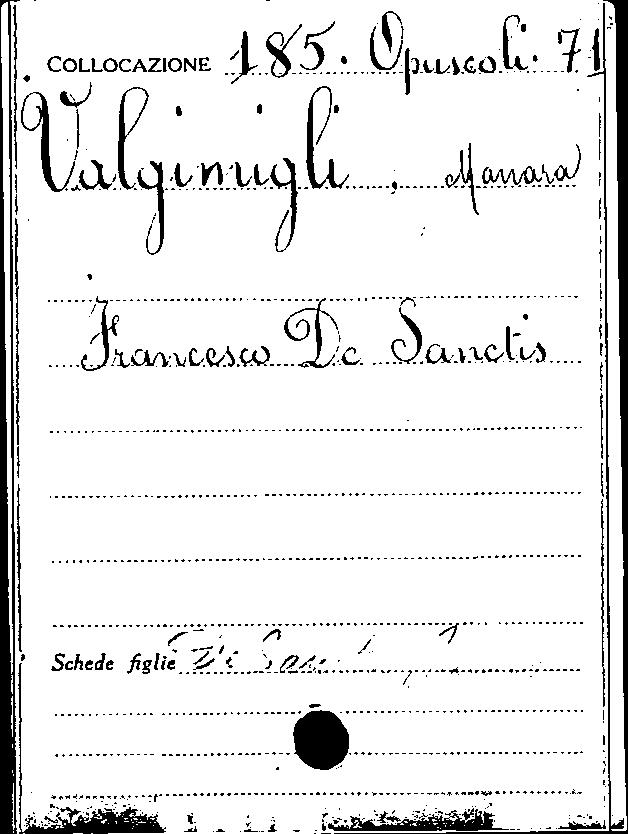 COLLOCAZIONE 185. Opuscoli. 71
Valgimigli, Manara
Francesco De Sanctis
Schede figlie